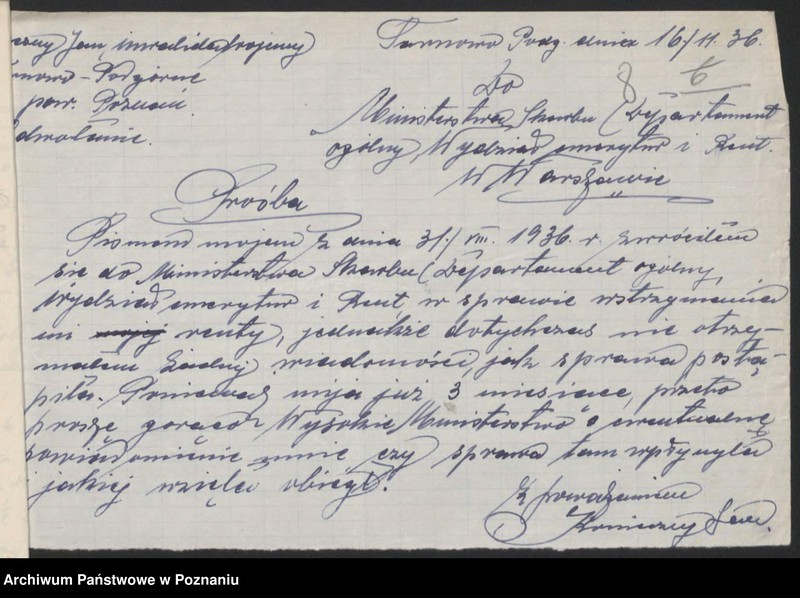 Jan, inwalida wojenny
Tarnowo Podg. dnia 16/11. 36.
8 6
Do
pow. Poznań
Ministerstwa Skarbu (Departament
ogólny, Wydział emerytur i Rent.
W Warszawie
Prośba
Pismem mojem z dnia 31/VIII. 1936. r. zwróciłem
się do Ministerstwa Skarbu (Departament ogólny,
Wydział emerytur i Rent, w sprawie wstrzymania
mi mojej renty, jednakże dotychczas nie otrzy-
małem żadnej wiadomości, jak sprawa postą-
piła. Ponieważ mija już 3 miesiące, przeto
proszę gorąco Wysokie Ministerstwo o ewentualne
powiadomienie mnie czy sprawa tam wpłynęła
jakiej wzięła obieg.
Z poważaniem
Konieczny Jan.
Archiwum Państwowe w Poznaniu